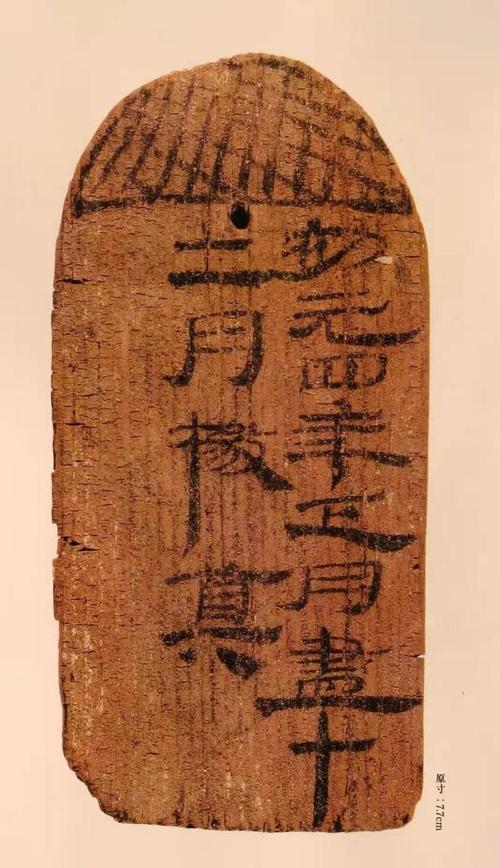 初元四年正月盡十
二月掾真
原寸：7.7cm